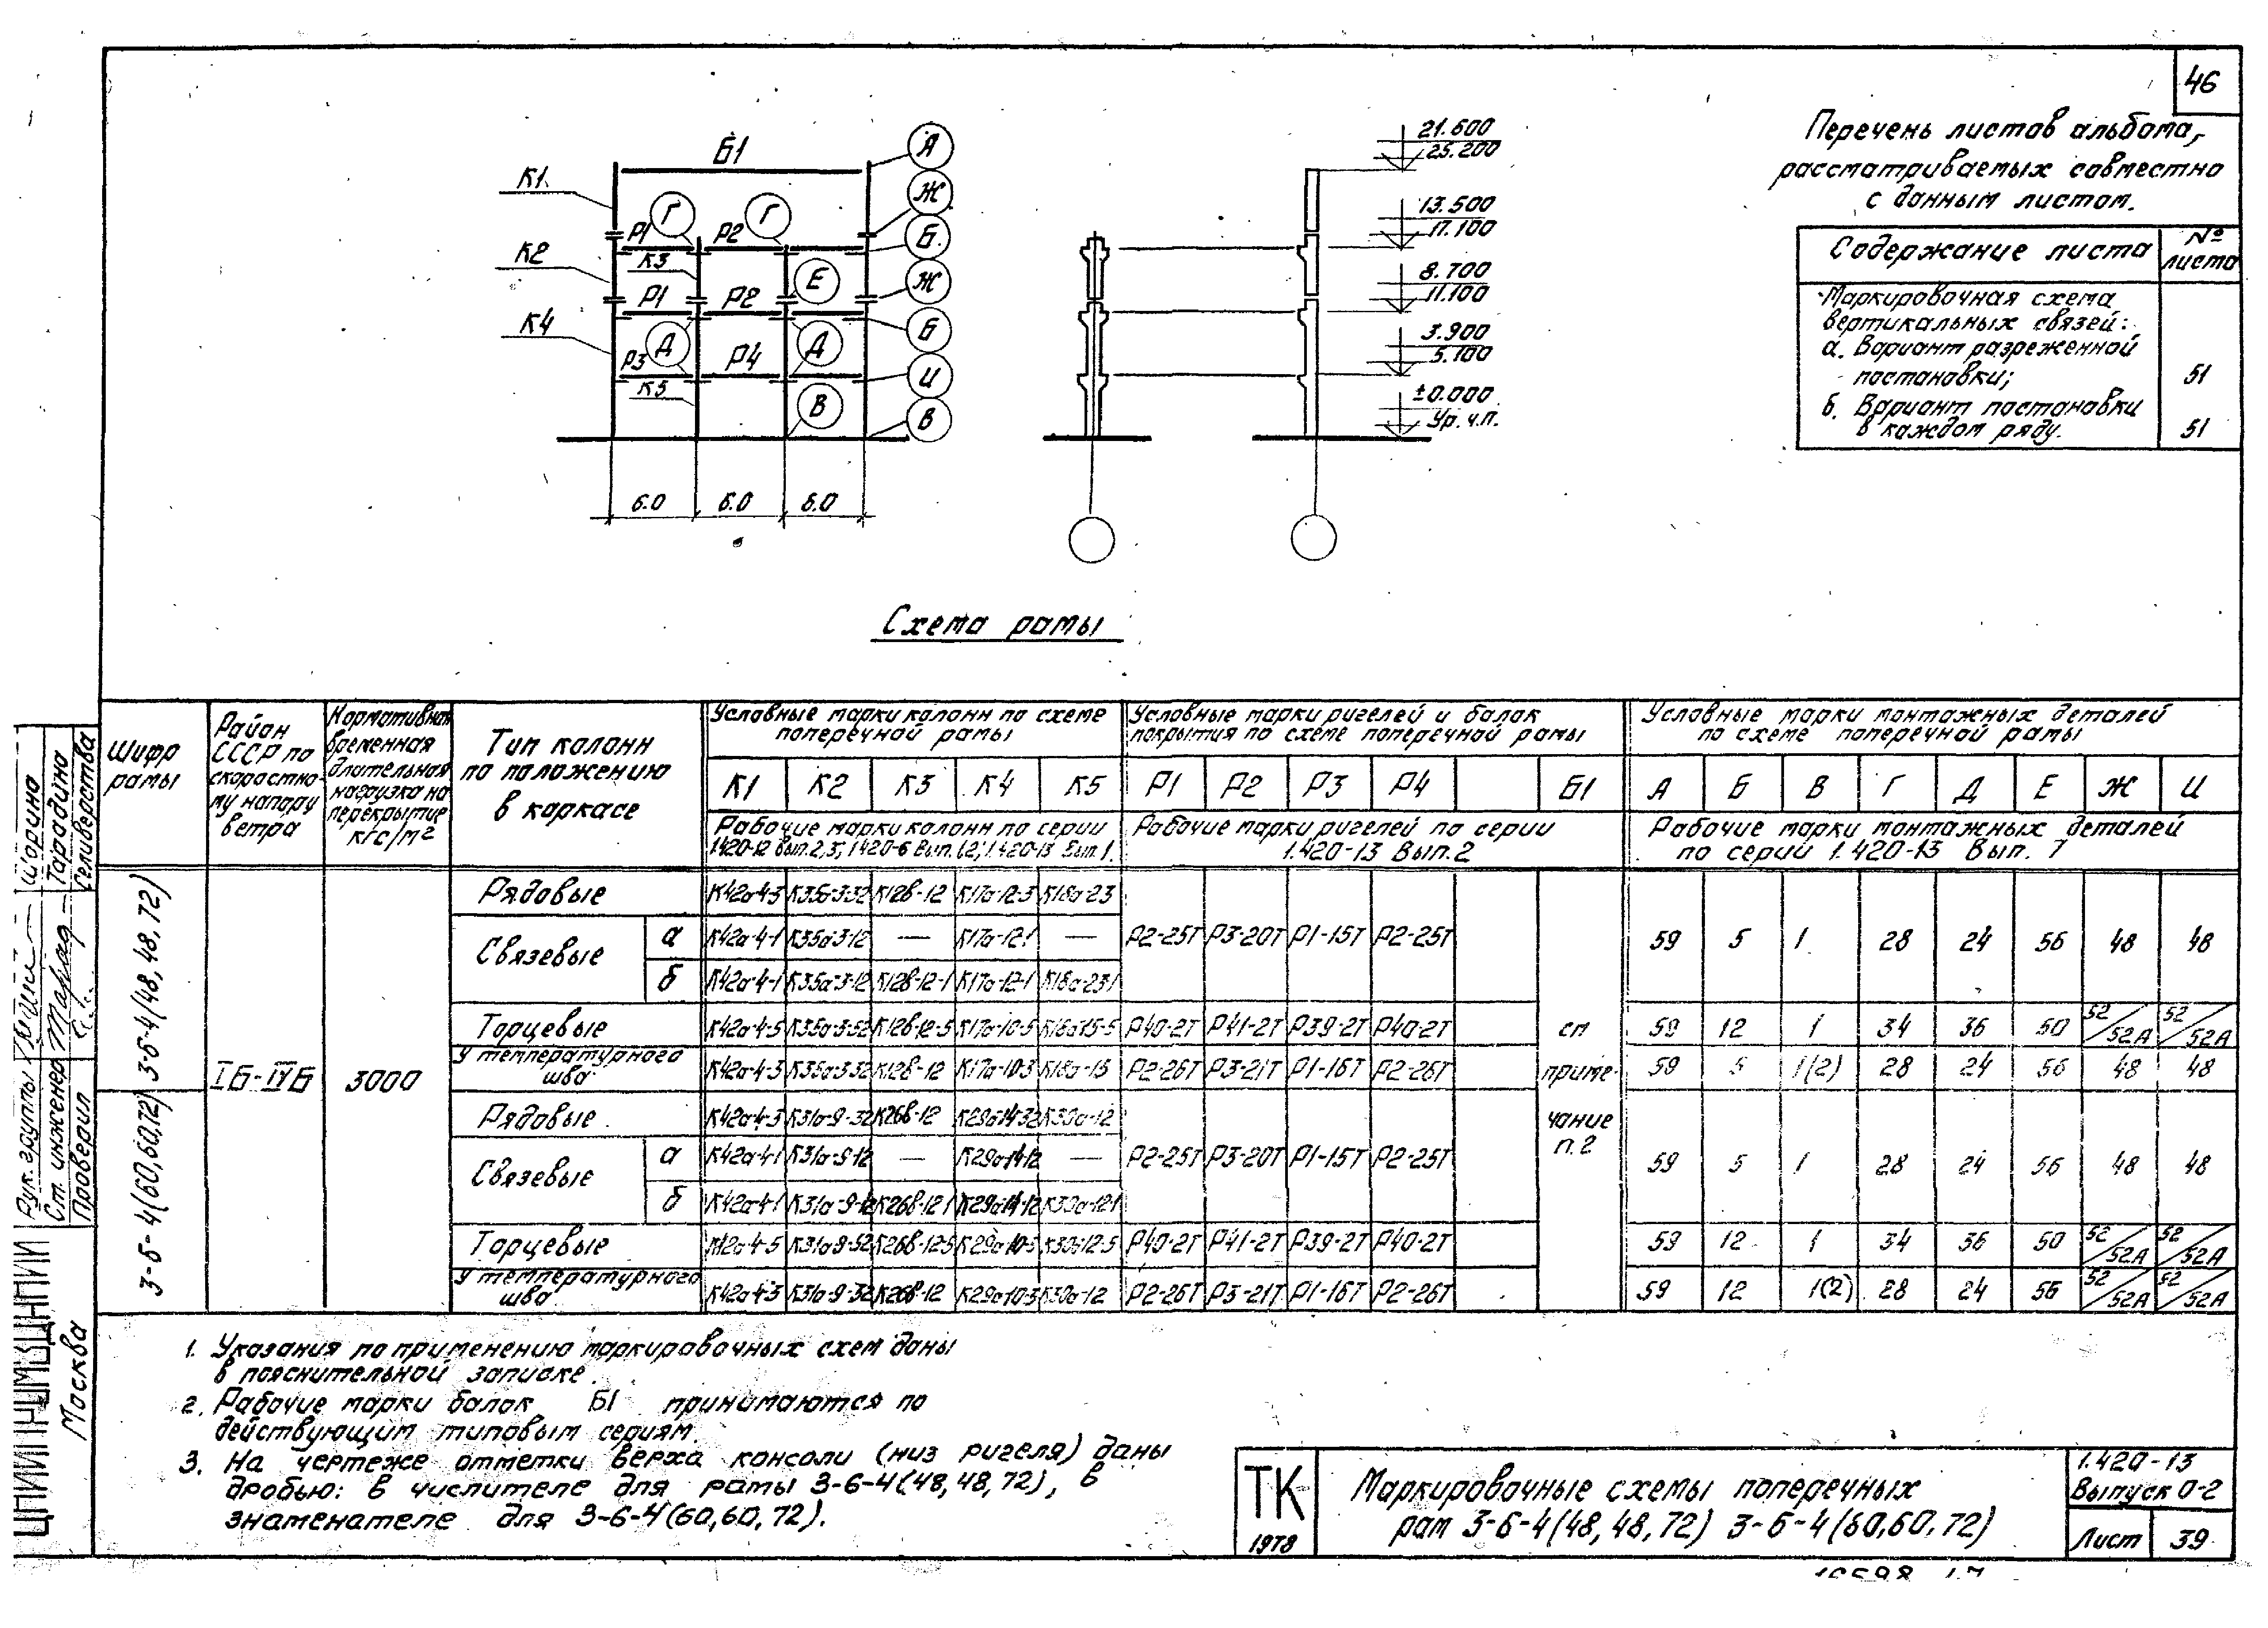 46
Перечень листов альбома,
рассматриваемых совместно
с данным листом.
Содержание листа
№ листа
Маркировочная схема
вертикальных связей:
а. Вариант разреженной
постановки; 51
б. Вариант постановки
в каждом ряду. 51
Б1
К1
К2
К4
Р1 Р2
К3
Р1 Р2
Р3 Р4
К5
Г Г
Е
Д Д
В
А
Ж
Б
Ж
Б
И
В
6.0 6.0 6.0
21.600
25.200
13.500
17.100
8.700
11.100
3.900
5.100
±0.000
Ур. ч.п.
Схема рамы
Шифр рамы
Район СССР по скоростно-му напору ветра
Нормативная временная длительная нагрузка на перекрытие кгс/м2
Тип колонн по положению в каркасе
Условные марки колонн по схеме поперечной рамы
Условные марки ригелей и балок покрытия по схеме поперечной рамы
Условные марки монтажных деталей по схеме поперечной рамы
К1 К2 К3 К4 К5 Р1 Р2 Р3 Р4 Б1 А Б В Г Д Е Ж И
Рабочие марки колонн по серии
1.420-12 вып. 2,3; 1.420-6 Вып. 1,2; 1.420-13 Вып. 1.
Рабочие марки ригелей по серии
1.420-13 Вып. 2
Рабочие марки монтажных деталей
по серии 1.420-13 Вып. 7
3-6-4(48,48,72)
IБ-IVБ
3000
Рядовые К42а-4-3 К35а-3-32 К12в-12 К17а-12-3 К18а-23
Связевые
а К42а-4-1 К35а-3-12 — К17а-12-1 —
Р2-25Т Р3-20Т Р1-15Т Р2-25Т 59 5 1 28 24 56 48 48
б К42а-4-1 К35а-3-12 К12в-12-1 К17а-12-1 К18а-23-1
Торцевые К42а-4-5 К35а-3-52 К12в-12-5 К17а-10-5 К18а-15-5 Р40-2Т Р41-2Т Р39-2Т Р40-2Т 59 12 1 34 36 50 52/52А 52/52А
У температурного шва К42а-4-3 К35а-3-32 К12в-12 К17а-10-3 К18а-15 Р2-26Т Р3-21Т Р1-16Т Р2-26Т 59 5 1(2) 28 24 56 48 48
см
приме-
чание
п. 2
3-6-4(60,60,72)
Рядовые К42а-4-3 К31а-9-32 К26в-12 К29а-14-32 К30а-12
Связевые
а К42а-4-1 К31а-9-12 — К29а-14-12 —
Р2-25Т Р3-20Т Р1-15Т Р2-25Т 59 5 1 28 24 56 48 48
б К42а-4-1 К31а-9-12 К26в-12-1 К29а-14-12 К30а-12-1
Торцевые К42а-4-5 К31а-9-52 К26в-12-5 К29а-10-5 К30а-12-5 Р40-2Т Р41-2Т Р39-2Т Р40-2Т 59 12 1 34 36 50 52/52А 52/52А
У температурного шва К42а-4-3 К31а-9-32 К26в-12 К29а-10-3 К30а-12 Р2-26Т Р3-21Т Р1-16Т Р2-26Т 59 12 1(2) 28 24 56 52/52А 52/52А
1. Указания по применению маркировочных схем даны
в пояснительной записке.
2. Рабочие марки балок Б1 принимаются по
действующим типовым сериям.
3. На чертеже отметки верха консоли (низ ригеля) даны
дробью: в числителе для рамы 3-6-4(48,48,72), в
знаменателе для 3-6-4(60,60,72).
ТК
1978
Маркировочные схемы поперечных
рам 3-6-4(48,48,72) 3-6-4(60,60,72)
1.420-13
Выпуск 0-2
Лист 39
Рук. группы Шорина
Ст. инженер Тарадина
Проверил Селиверства
ЦНИИПРОМЗДАНИЙ
Москва